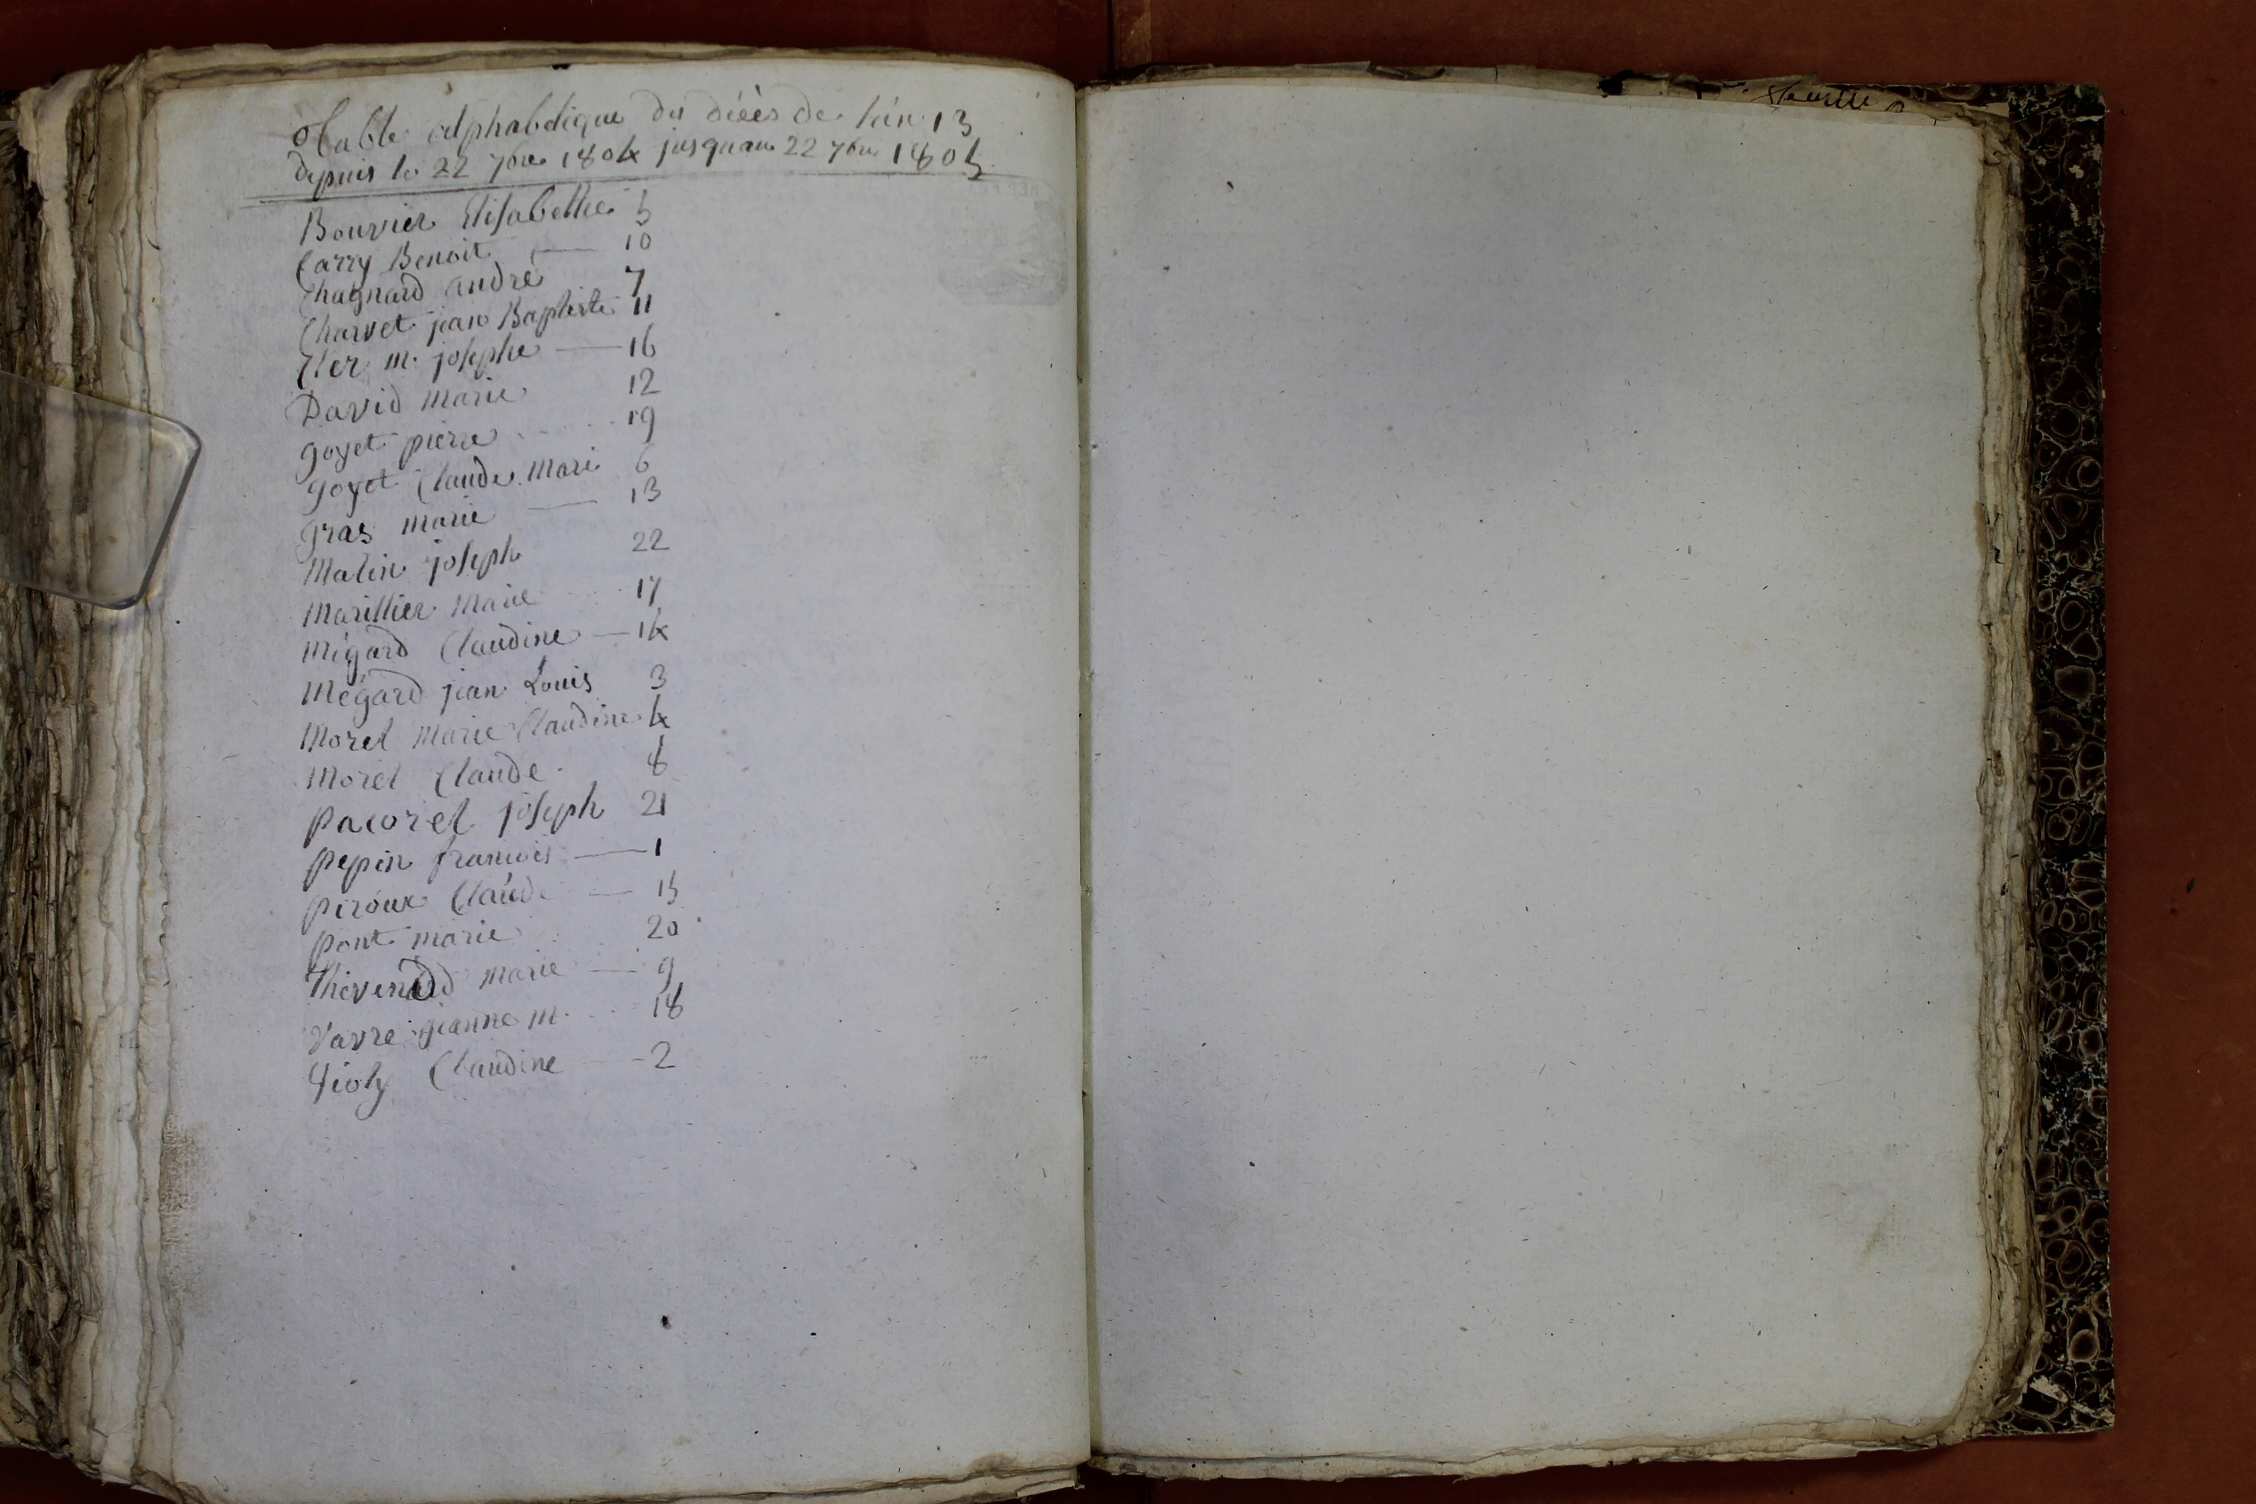 Table alphabetique du décès de l'an 13
depuis le 22 7bre 1804 jusquau 22 7bre 1805
Bouvier Elisabethe 5
Carry Benoit — 10
Chagnard andré 7
Charvet jean Baptiste 11
Cler m. josephe — 16
David marie 12
goyet pierre 19
goyot Claude Marie 6
gras marie — 13
Matin joseph 22
Marillier Marie 17
Mégard Claudine — 14
Mégard jean Louis 3
Morel Marie Claudine 4
Morel Claude 8
pacoret joseph 21
pepin francois — 1
piroux Claude — 15
pont marie 20
Thevenard marie — 9
Vavre jeanne m. 18
Violy Claudine — 2